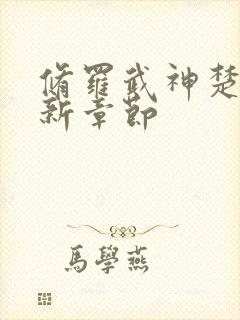 脩羅武神楚
新章節
馬學燕